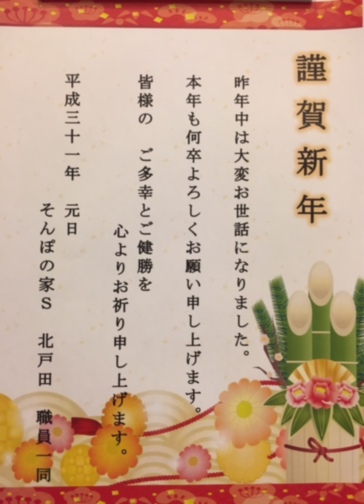 謹賀新年
昨年中は大変お世話になりました。
本年も何卒よろしくお願い申し上げます。
皆様の　ご多幸とご健勝を
心よりお祈り申し上げます。
平成三十一年　元日
そんぽの家Ｓ　北戸田　職員一同